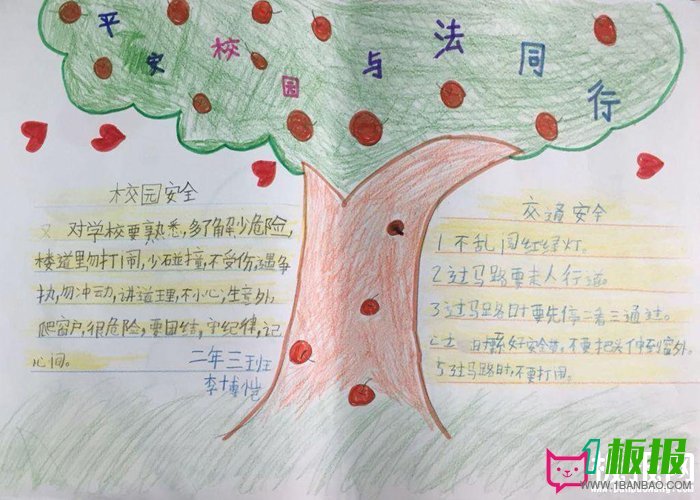 平安校园与法同行
校园安全
对学校要熟悉,多了解少危险,
楼道里勿打闹,少碰撞,不受伤,遇争
执,勿冲动,讲道理,不小心,生意外,
爬窗户,很危险,要团结,守纪律,记
心间。
二年三班
李博恺
交通安全
1 不乱闯红绿灯。
2 过马路要走人行道。
3 过马路时要先停二看三通过。
系好安全带,不要把头伸到窗外。
5 过马路时,不要打闹。
1板报
WWW.1BANBAO.COM